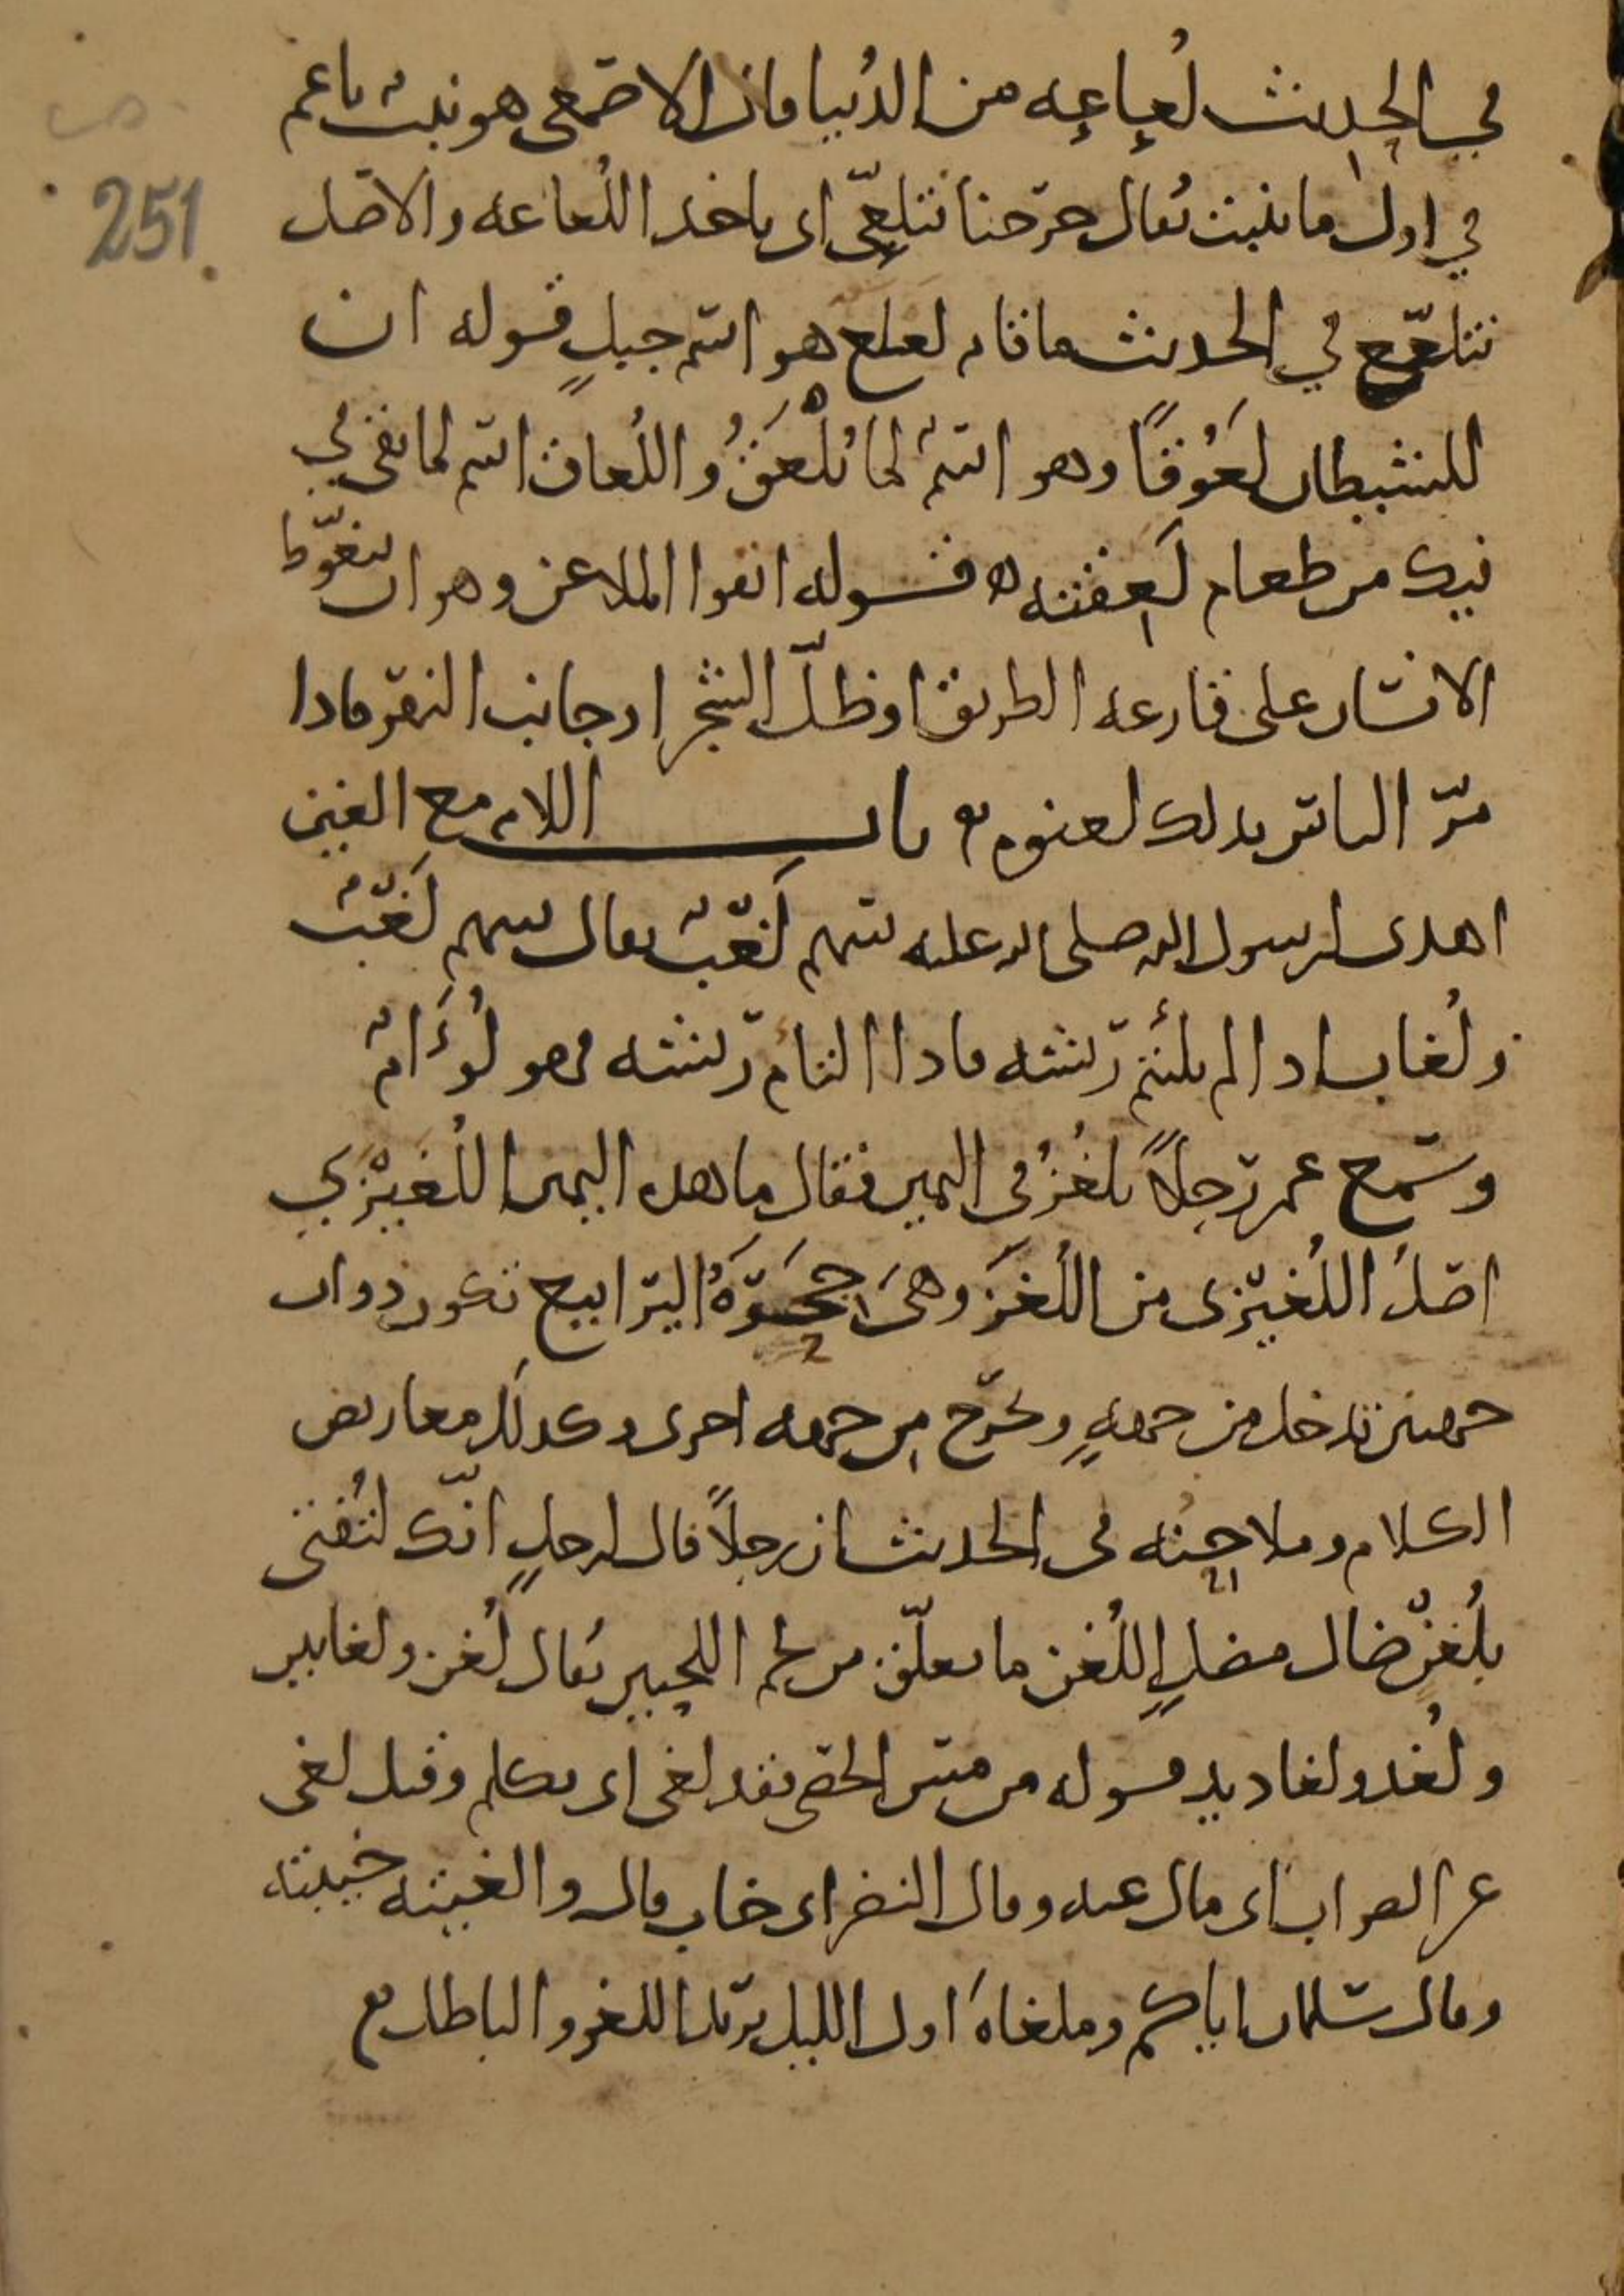 في الحديث لُعاعه من الدُنيا قال الاصمعي هو نبت ناعم
251
في اول ما ينبت يُقال خرجنا نتلعّى اى ناخذ اللُعاعه والاصل
نتلعّع في الحديث ما قام لعلع هو اسم جبلٍ قوله ان
للشيطان لَعُوقًا وهو اسمٌ لما يُلْعَقُ واللُعاق اسم لما بقى في
فيك من طعام لَعِقته ه قوله اتقوا الملاعن وهو ان يتغوّط
الانسان على قارعه الطريق او ظلّ الشجر او جانب النهر فاذا
مرّ الناس بذلك لعنوه باب اللام مع الغين
اهدى لرسول الله صلى الله عليه سهم لَغْبٌ يقال سهم لَغْبٌ
ولُغاب اذا لم يلتئم ريشه فاذا التام ريشه فهو لُؤَامٌ
وسمع عمر رجلاً يلغز في اليمين فقال ما هذه اليمين اللُغَيْزي
اصلُ اللُغّيزى من اللُغَز وهى جِحَرَةُ اليرابيع تكون ذوات
جهتين تدخل من جهةٍ وتخرج من جهه اخرى وكذلك معاريض
الكلام وملاحنه في الحديث ان رجلاً قال لرجلٍ انّك لتُفتى
بلُغنٍ ضال مضلٍ اللُغن ما تعلّق من لحم اللحيين يُقال لُغن ولغانين
ولُغد ولغاديد قوله من مس الحصى فقد لغى اى تكلم وقيل لغى
عن الصواب اى مال عنه وقال النضر اى خاب قال والغيته خيبته
وقال سلمان اياكم وملغاةَ اول الليل يريد اللغو والباطل